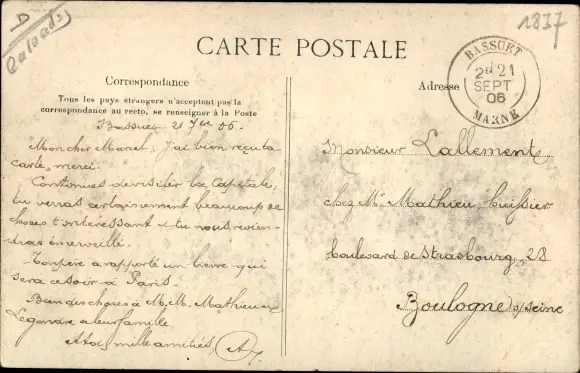 D
Calvados
1837
CARTE POSTALE
Correspondance
Tous les pays étrangers n'acceptent pas la
correspondance au recto, se renseigner à la Poste
Adresse
BASSUET
2e 21
SEPT
06
MARNE
Bassuet 21 7bre 06.
Mon cher Marcel, j'ai bien reçu ta
carte, merci.
Continues de visiter la Capitale,
tu verras certainement beaucoup de
choses t'intéressant et tu nous revien-
dras émerveillé.
Ton père a rapporté un lièvre qui
sera ce soir à Paris.
Bien des choses à M. M. Mathieu
Legendre et leur famille
A toi, mille amitiés,
Monsieur Lallement
chez Mr Mathieu, huissier
boulevard de Strasbourg, 28
Boulogne s/seine